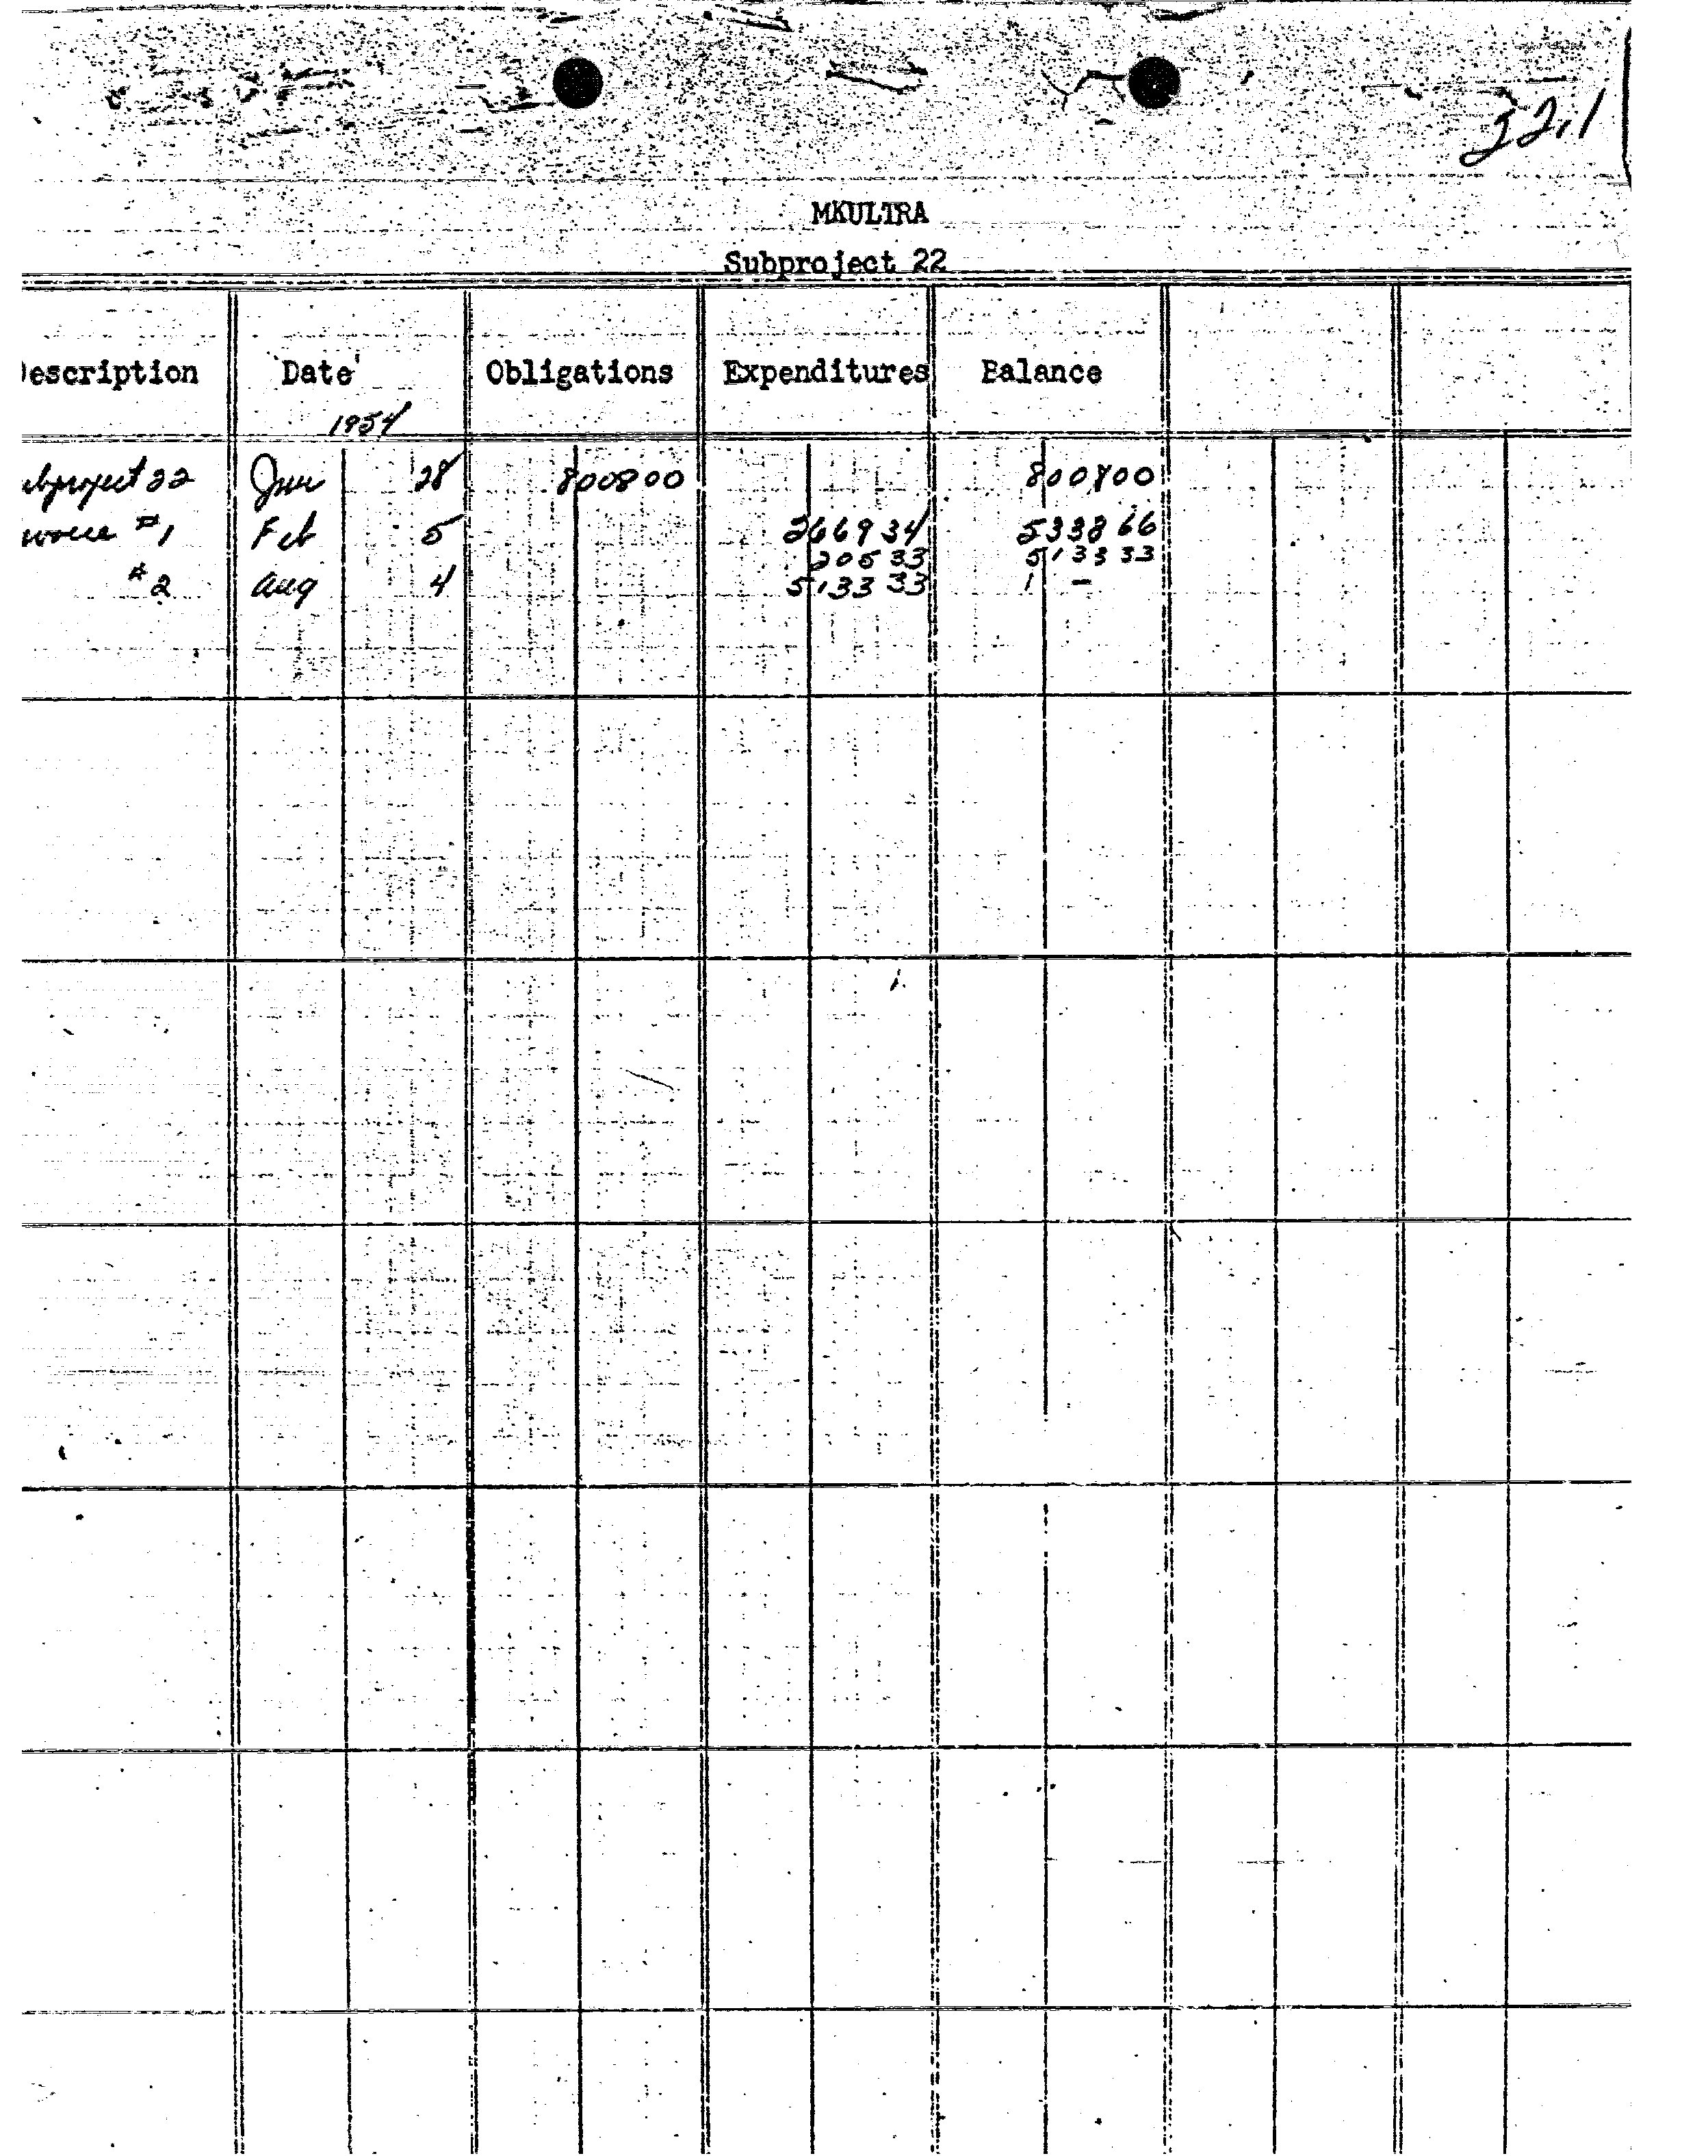 32,1
MKULTRA
Subproject 22
escription Date Obligations Expenditures Balance
1954
ubproject 22 Jan 28 8008 00 8008 00
nvoice #1 Feb 5 2669 34 5338 66
205 33 5133 33
#2 Aug 4 5133 33 -